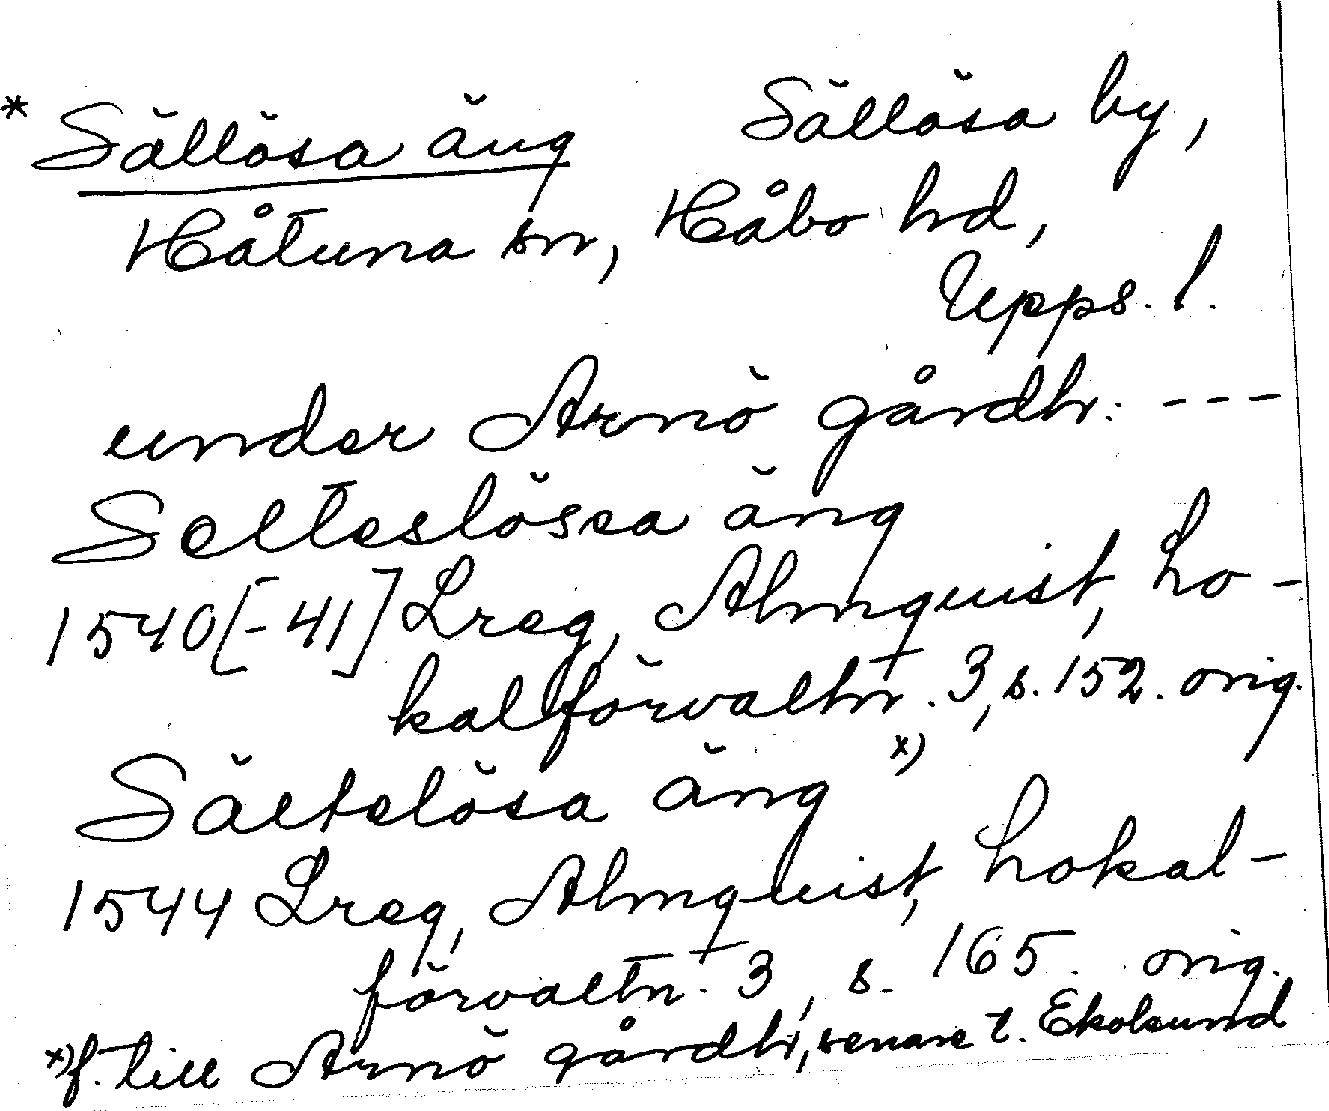 * Sällösa äng Sällösa by,
Håtuna sn, Håbo hd,
Upps. l.
under Arnö gårdh: ---
Selteslösea äng
1540[-41] Lreg, Almquist, Lo-
kalförvaltn. 3, s. 152. orig.
Säeltelösa äng x)
1544 Lreg, Almquist, Lokal-
förvaltn. 3, s. 165. orig.
x) f. till Arnö gårdh, senare t. Ekolsund